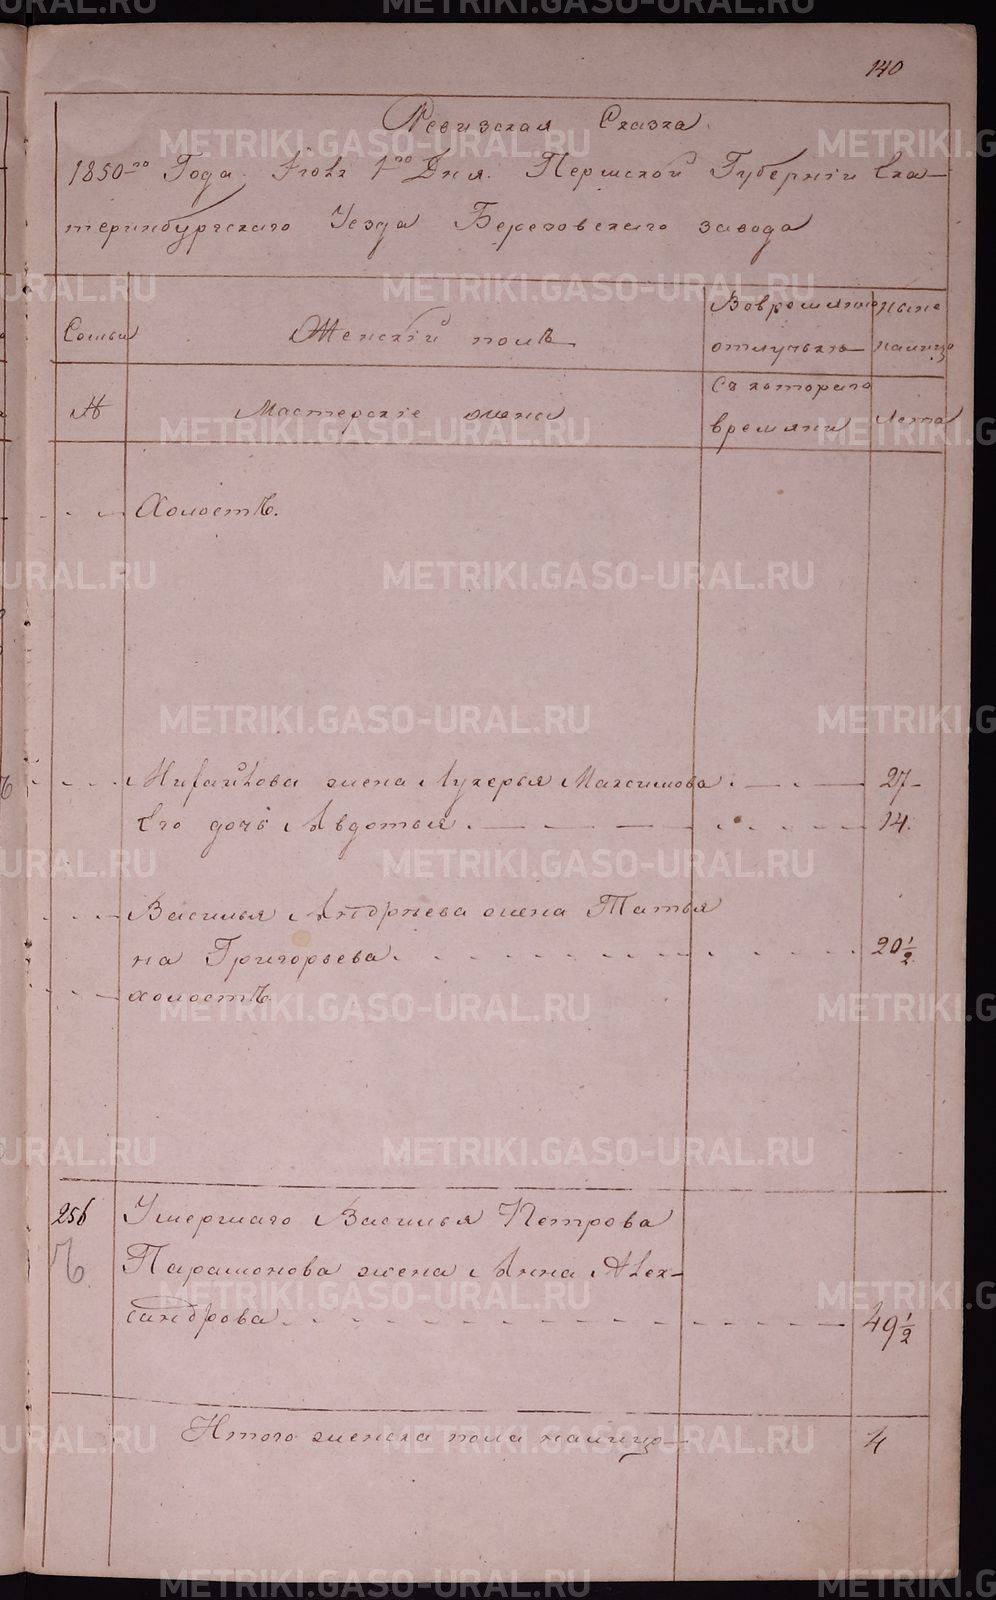 140
Ревизская Сказка.
1850го Года 1го Дня. Пермской Губернiи Ека-
теринбургскаго Уезда Березовскаго завода
Семьи
Женскiй полъ
Вовремянно
отлучькѣ
ныне
налицо
№
Мастерскiе жены
Съ котораго
времяни
лета
Холостъ.
жена Лукерья Максимова 27
Его дочь Авдотья 14.
Василья Андрѣева жена Татья
на Григорьева. 20 1/2
холостъ
256
Умершаго Василья Петрова
Парамонова жена Анна Алек-
сандрова 49 1/2
Итого женска пола налицо 4
METRIKI.GASO-URAL.RU